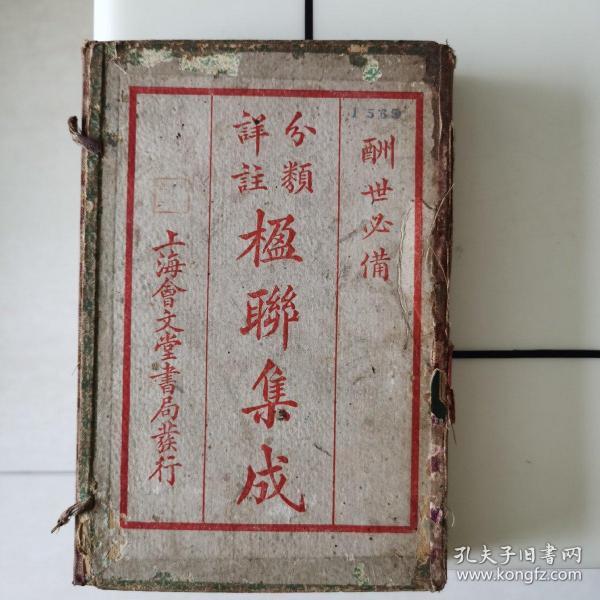 酬世必備
分類
詳註
楹聯集成
上海會文堂書局發行
1589
孔夫子旧书网
www.kongfz.com